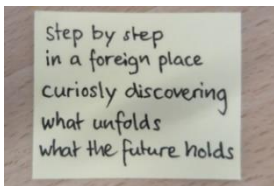 step by step
in a foreign place
curiosly discovering
what unfolds
what the future holds